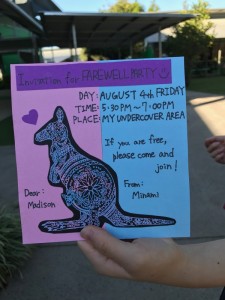 Invitation for FAREWELL PARTY
DAY: AUGUST 4th FRIDAY
TIME: 5:30 PM~7:00PM
PLACE: MY UNDERCOVER AREA
If you are free,
please come and
join!
Dear:
Madison
From:
Minami